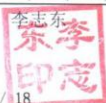 李志东
李志
东印
18